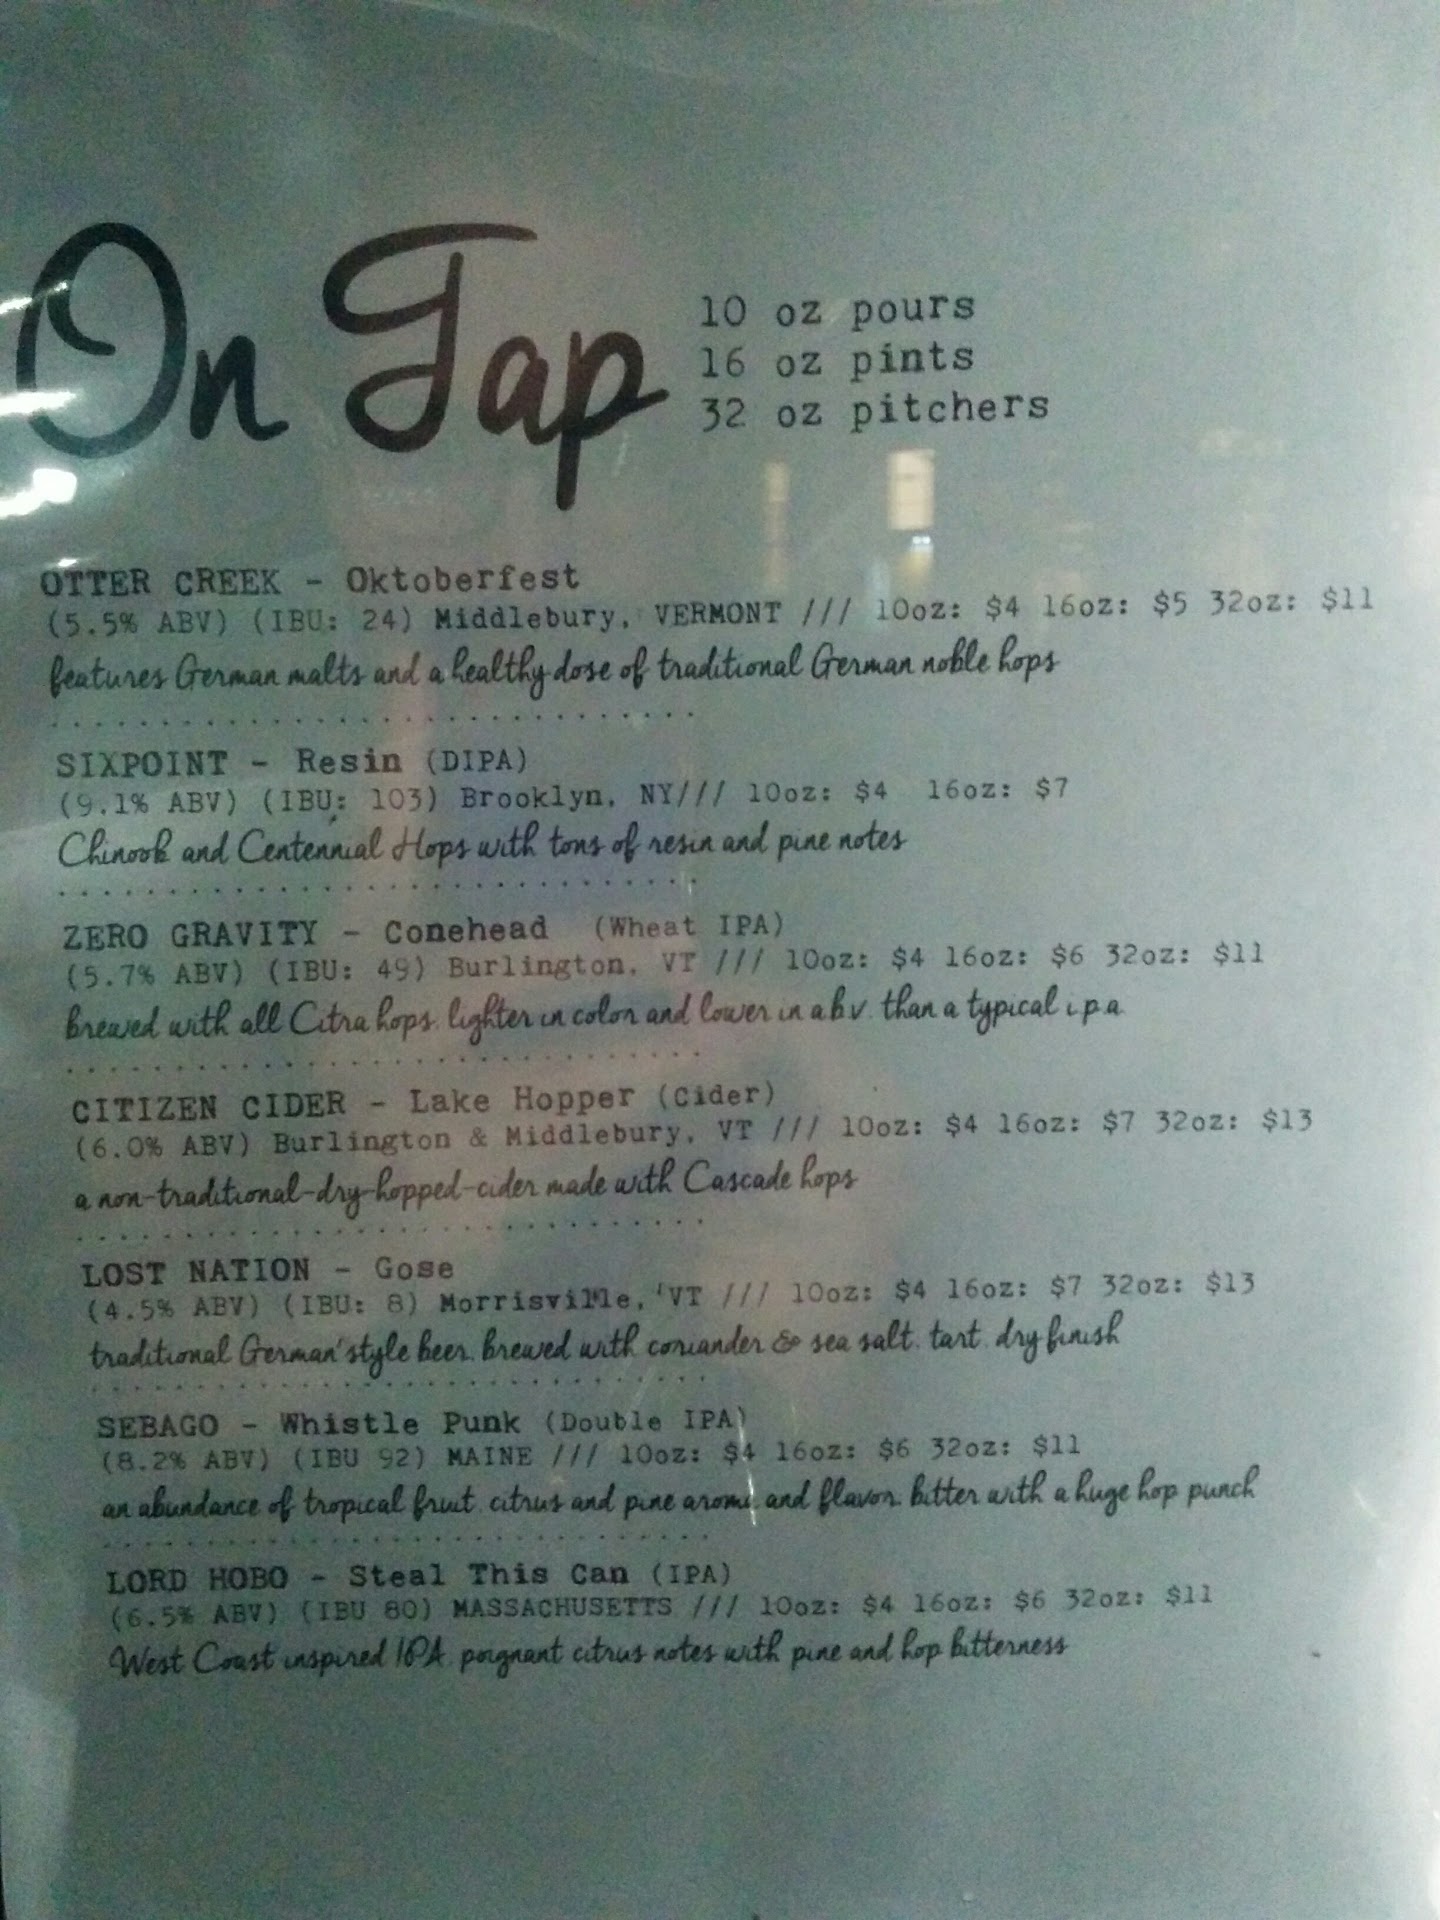 On Tap
10 oz pours
16 oz pints
32 oz pitchers
OTTER CREEK - Oktoberfest
(5.5% ABV) (IBU: 24) Middlebury, VERMONT /// 10oz: $4 16oz: $5 32oz: $11
features German malts and a healthy dose of traditional German noble hops
SIXPOINT - Resin (DIPA)
(9.1% ABV) (IBU: 103) Brooklyn, NY/// 10oz: $4 16oz: $7
Chinook and Centennial Hops with tons of resin and pine notes
ZERO GRAVITY - Conehead (Wheat IPA)
(5.7% ABV) (IBU: 49) Burlington, VT /// 10oz: $4 16oz: $6 32oz: $11
brewed with all Citra hops, lighter in color and lower in a.b.v. than a typical i.p.a.
CITIZEN CIDER - Lake Hopper (Cider)
(6.0% ABV) Burlington & Middlebury, VT /// 10oz: $4 16oz: $7 32oz: $13
a non-traditional-dry-hopped-cider made with Cascade hops
LOST NATION - Gose
(4.5% ABV) (IBU: 8) Morrisville, VT /// 10oz: $4 16oz: $7 32oz: $13
traditional German style beer, brewed with coriander & sea salt, tart, dry finish
SEBAGO - Whistle Punk (Double IPA)
(8.2% ABV) (IBU 92) MAINE /// 10oz: $4 16oz: $6 32oz: $11
an abundance of tropical fruit, citrus and pine aroma, and flavor, bitter with a huge hop punch
LORD HOBO - Steal This Can (IPA)
(6.5% ABV) (IBU 80) MASSACHUSETTS /// 10oz: $4 16oz: $6 32oz: $11
West Coast inspired IPA, poignant citrus notes with pine and hop bitterness